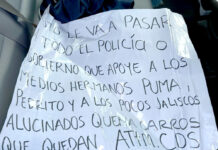 LE VA A PASAR
TODO EL POLICÍA O
GOBIERNO QUE APOYE A LOS
MEDIOS HERMANOS PUMA,
PEDRITO Y A LOS POCOS JALISCOS
ALUCINADOS QUEMA CARROS
QUE QUEDAN. ATM.CDS